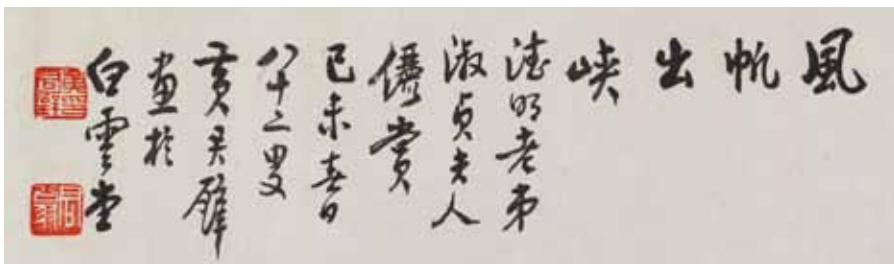 風帆出峽
德明老弟
淑貞夫人
儷賞
己未春日
八十二叟
黃君璧
畫於
白雲堂